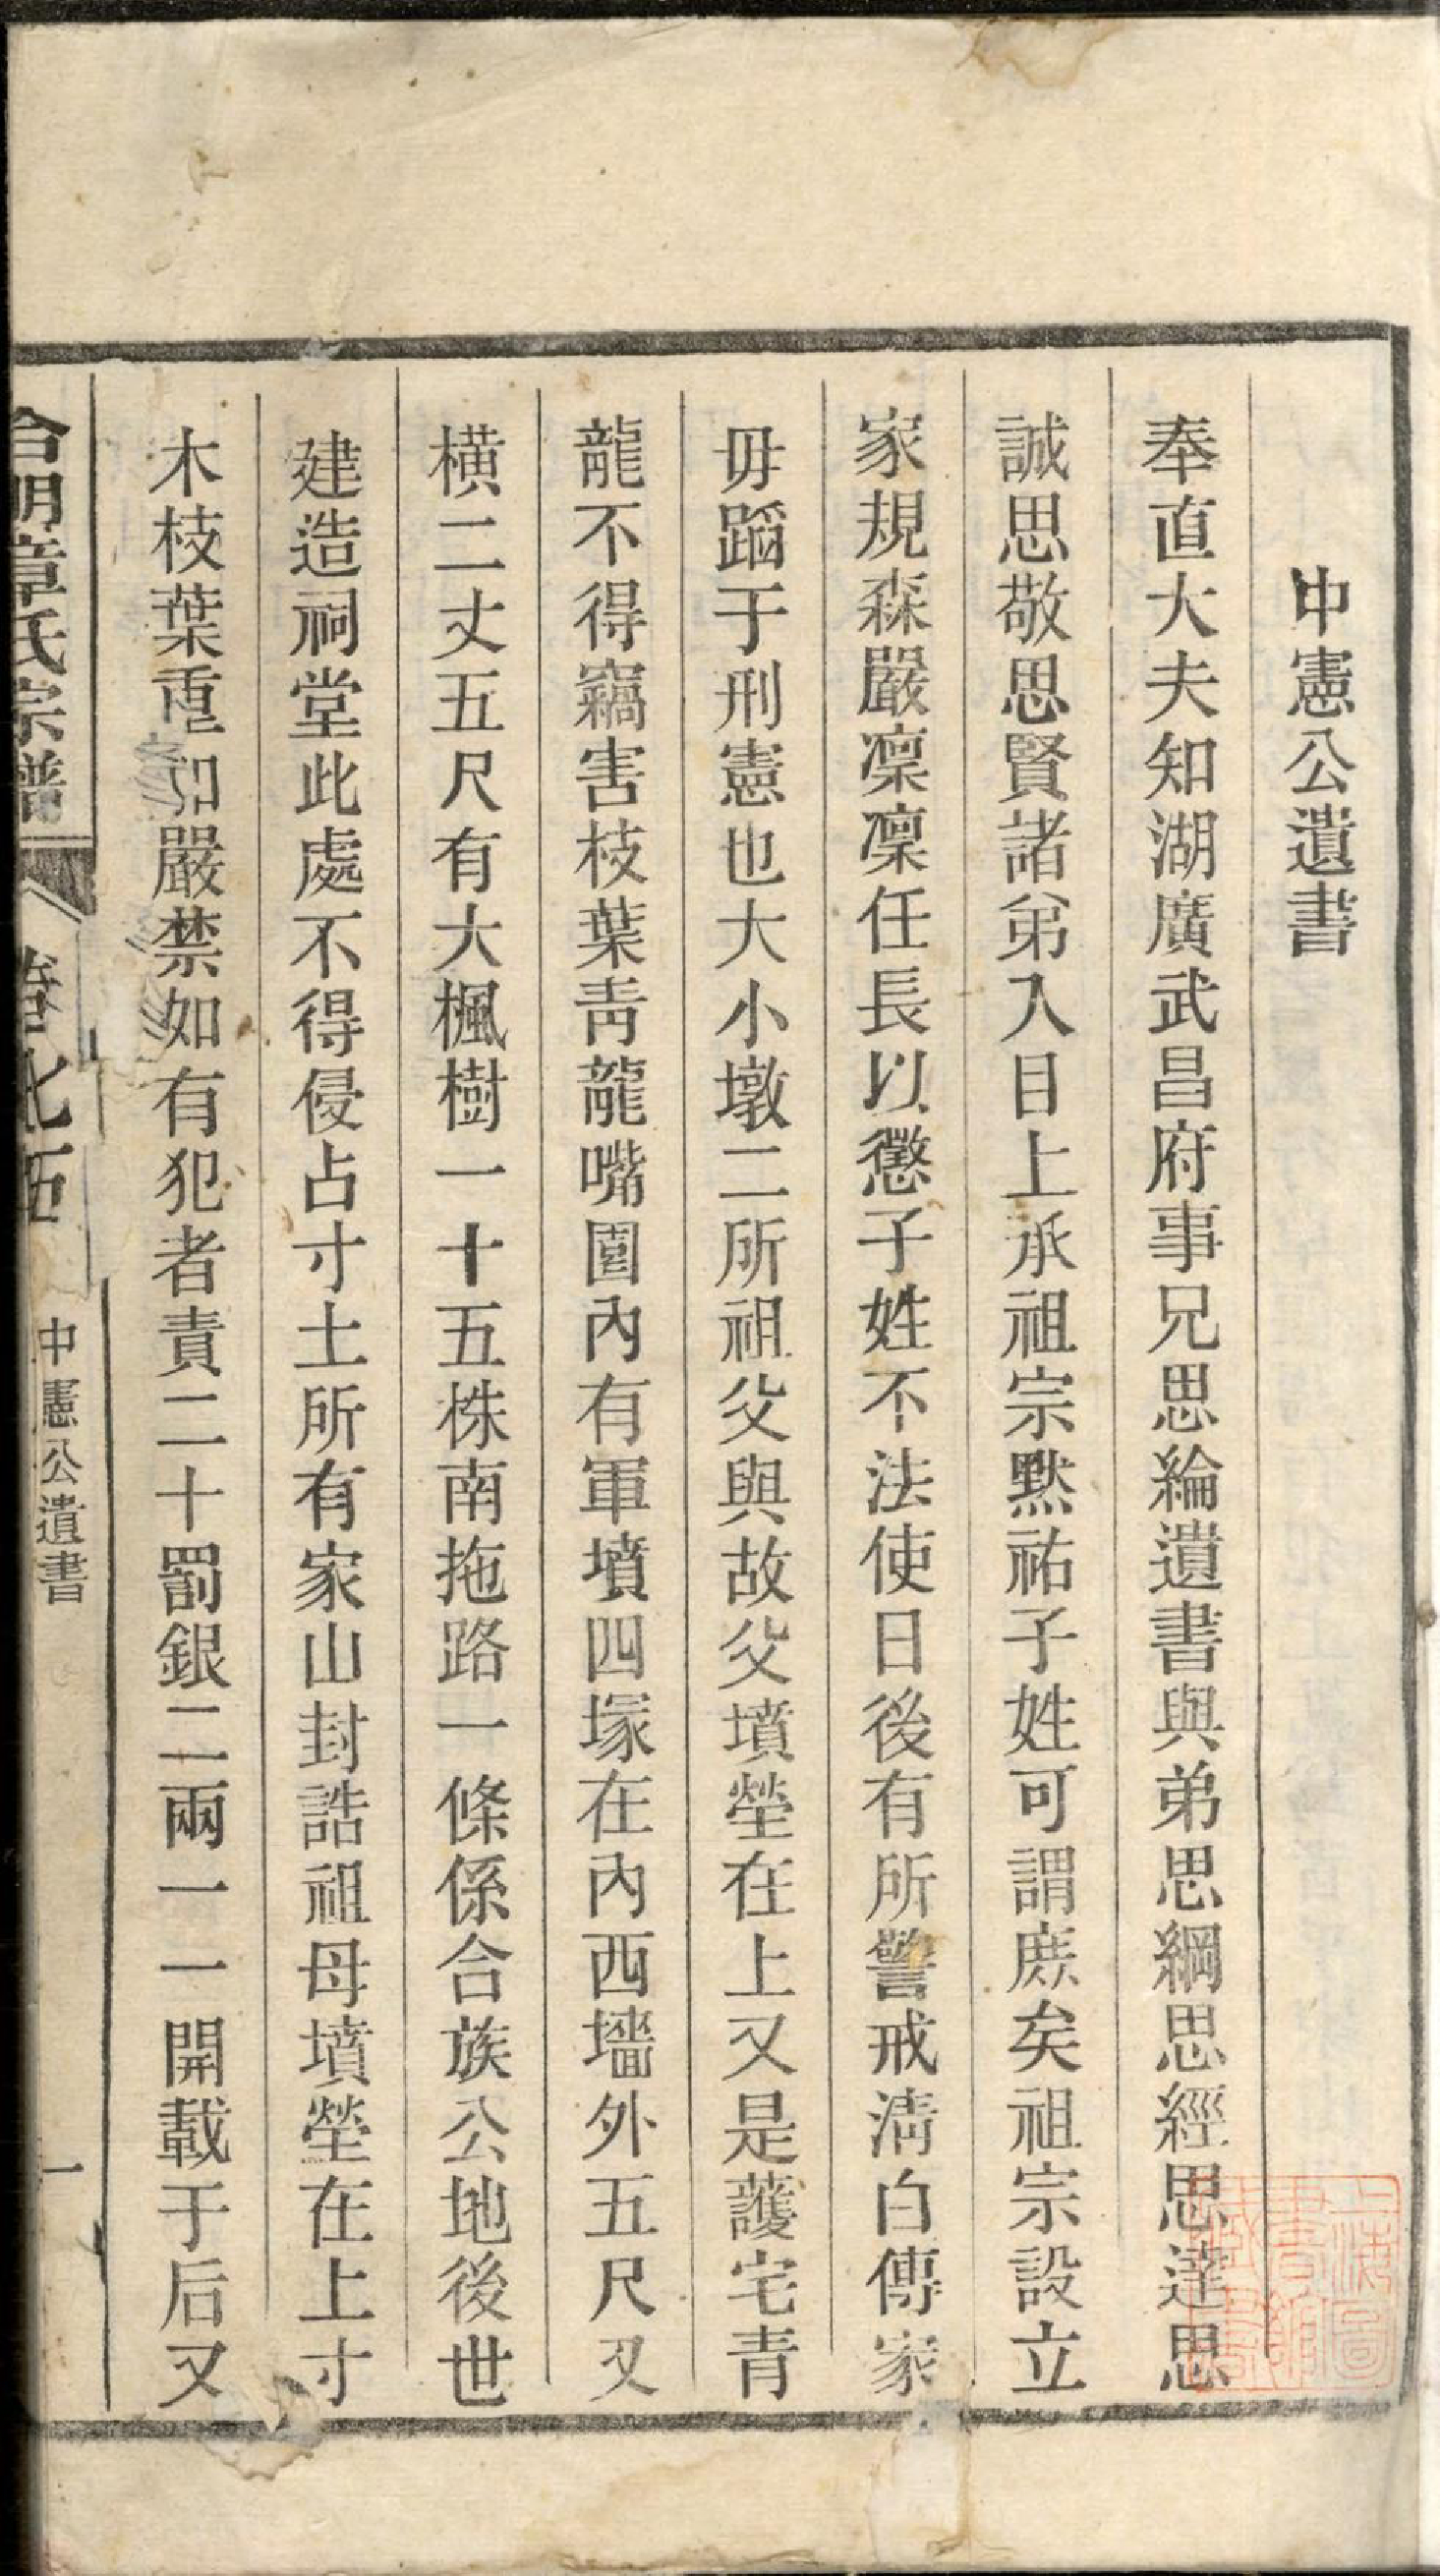 中憲公遺書
奉直大夫知湖廣武昌府事兄思綸遺書與弟思綱思經思達思
誠思敬思賢諸弟入目上承祖宗默祐子姓可謂庶矣祖宗設立
家規森嚴凜凜任長以懲子姓不法使日後有所警戒清白傳家
毋蹈于刑憲也大小墩二所祖父與故父墳塋在上又是護宅青
龍不得竊害枝葉青龍嘴園內有軍墳四塚在內西墻外五尺又
橫二丈五尺有大楓樹一十五株南拖路一條係合族公地後世
建造祠堂此處不得侵占寸土所有家山封誥祖母墳塋在上寸
木枝葉重加嚴禁如有犯者責二十罰銀二兩一一開載于后又
合明章氏宗譜
卷北五
中憲公遺書
一